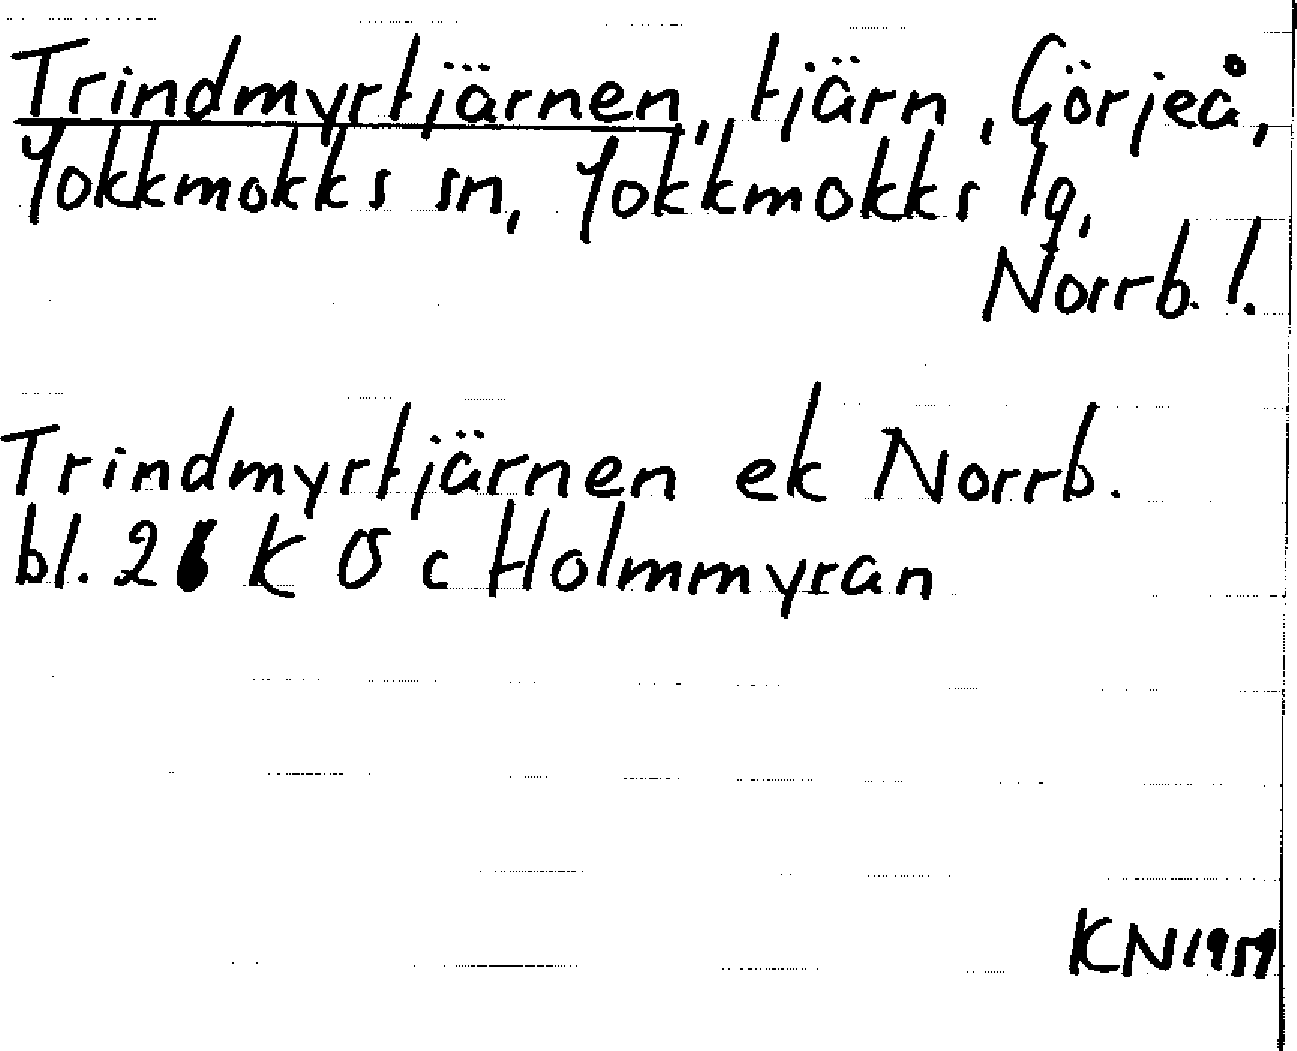 Trindmyrtjärnen, tjärn, Görjeå,
Jokkmokks sn, Jokkmokks lg,
Norrb. l.
Trindmyrtjärnen ek Norrb.
bl. 26 K Ö c Holmmyran
KN